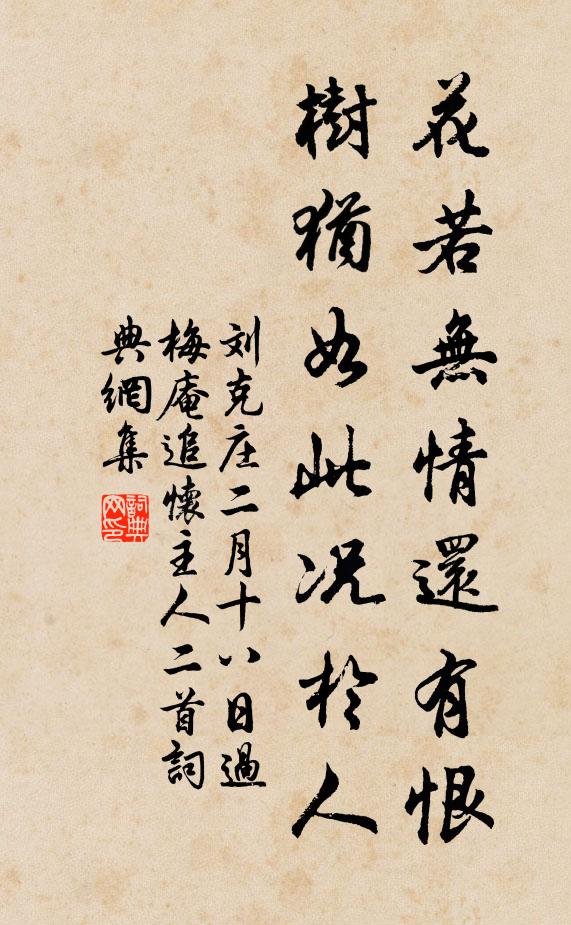 花若無情還有恨
樹猶如此况於人
刘克庄二月十八日過
梅庵追懷主人二首詞
典網集
詞典
网印